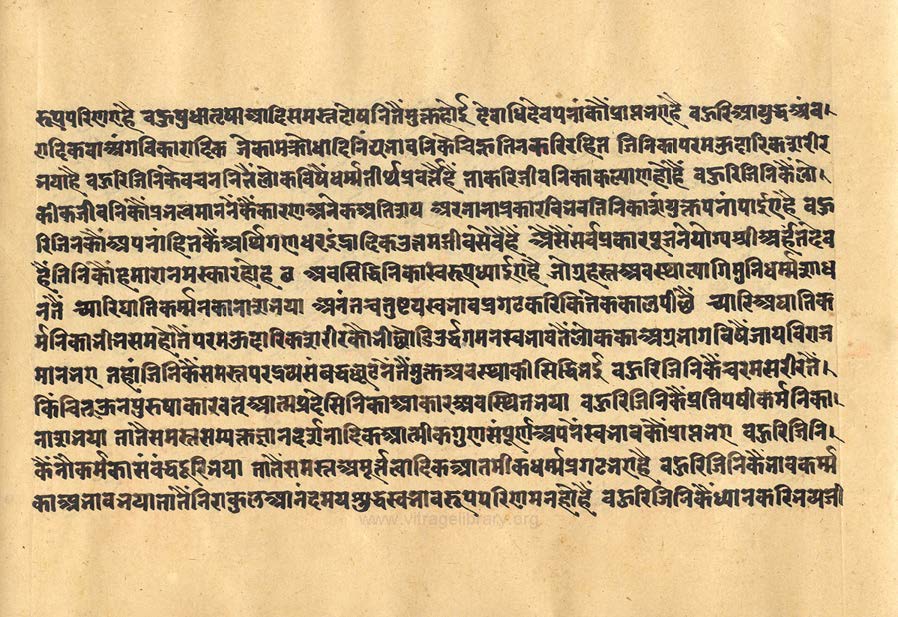 रूपपरिणएहै बहुरिक्षुधातृषाआदिसमस्तदोषनितैंमुक्तहोई देवाधिदेवपनांकौंप्राप्तभएहै बहुरिआयुधअंब।
रादिकवाअंगविकारादिक जेकामक्रोधादिनिंद्यभावनिकेचिह्नतिनकरिरहित जिनिकापरमऊदारिकशरीर
भयाहै बहुरिजिनिकेवचननितैंलोकविषैंधर्म्मतीर्थप्रवर्त्तैहै ताकरिजीवनिकाकल्याणहोहै बहुरिजिनिकैंलौ।
कीकजीवनिकौंप्रभुत्वमाननेंकैंकारणअनेकअतिशय अरनानाप्रकारविभवतिनिकासंयुक्तपनांपाईएहै बहु
रिजिनकौंअपनांहितकैंअर्थिगणधरइंद्रादिकउत्तमजीवसेवैहैं अैसैंसर्वप्रकारपूजनेयोग्यश्रीअर्हंतदेव
हैतिनिकौंहमारानमस्कारहोहु व अबसिद्धनिकास्वरूपध्याईएहै जोगृहस्तअवस्थात्यागिमुनिधर्म्मसाध
नतैं च्यारिघातिकर्म्मनकानाशभया अनंतचतुष्टयस्वभावप्रगटकरिकितेककालपीछैं च्यारिअघातिक
र्मनिकाभीभसमहोतैंपरमऊदारिकशरीरकौंभीछोडिऊर्द्धगमनस्वभावतैंलोककाअग्रभागविषैंजायविराज
मानभए तहांजिनिकैंसमस्तपरद्रव्यसंबंधछूटनेंतैंमुक्तअवस्थाकीसिद्धिभई बहुरिजिनिकैंचरमसरीरतैं
किंचित्ऊनपुरुषाकारवत्आत्मप्रदेसिनिकाआकारअवस्थितभया बहुरिजिनिकैंप्रतिपक्षीकर्मनिका।
नाशभया तातैंसमस्तसम्यक्तज्ञानदर्शनादिकआत्मीकगुणसंपूर्णअपनेंस्वभावकौंप्राप्तभए बहुरिजिनि।
कैंनौकर्मकासंबंधदूरिभया तातैंसमस्तअमूर्तत्वादिकआतमीकधर्म्मप्रगटभएहै बहुरिजिनिकैंभावकर्म्म
काअभावभयातातैंनिराकुलआनंदमयशुद्धस्वभावरूपपरिणमनहोहै बहुरिजिनिकैंध्यानकरिभव्यजी
www.vitragelibrary.org